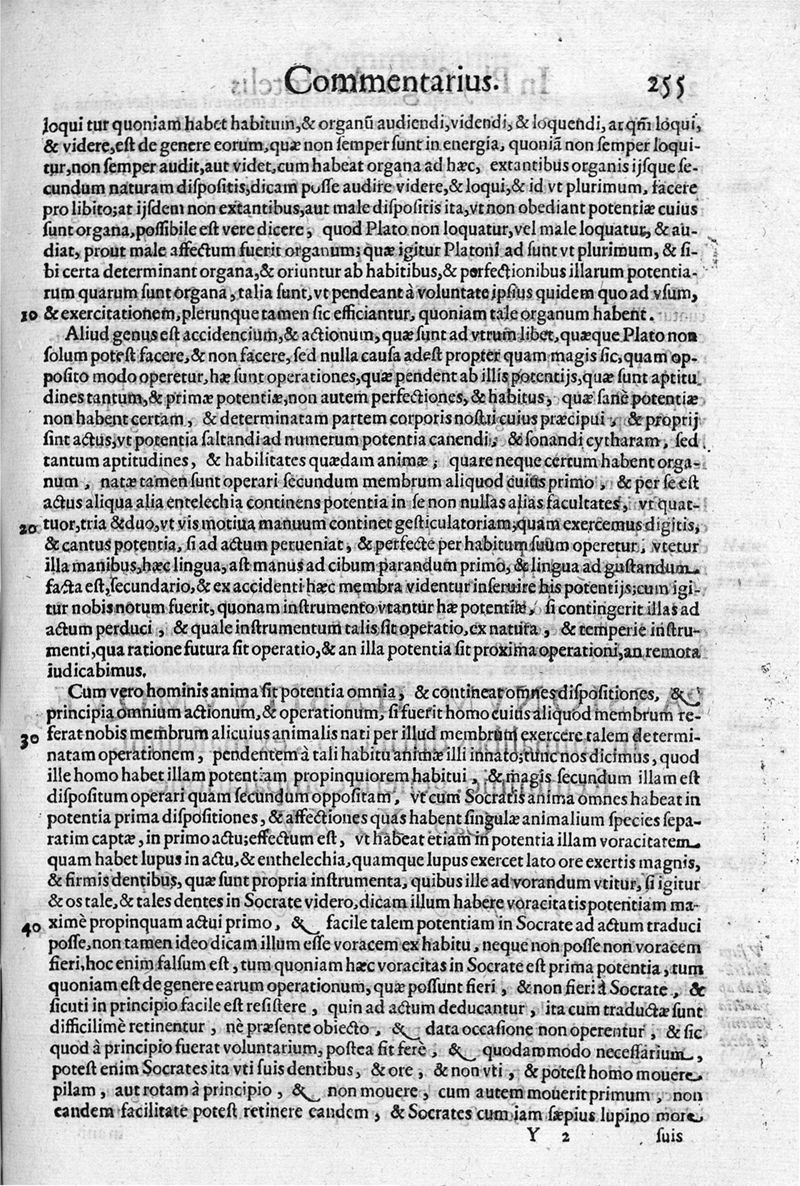 Commentarius. 255
loqui tur quoniam habet habitum,& organũ audiendi,videndi,& loquendi, at qm̃ loqui,
& videre,est de genere eorum,quæ non semper sunt in energia, quoniã non semper loqui-
tur,non semper audit,aut videt,cum habeat organa ad hæc, extantibus organis ijsque se-
cundum naturam dispositis,dicam posse audire videre,& loqui,& id vt plurimum, facere
pro libito;at ijsdem non extantibus,aut male dispositis ita,vt non obediant potentiæ cuius
sunt organa,possibile est vere dicere, quod Plato non loquatur,vel male loquatur, & au-
diat, prout male affectum fuerit organum; quæ igitur Platoni ad sunt vt plurimum, & si-
bi certa determinant organa,& oriuntur ab habitibus,& perfectionibus illarum potentia-
rum quarum sunt organa, talia sunt, vt pendeant à voluntate ipsius quidem quo ad vsum,
10 & exercitationem, plerunque tamen sic efficiantur, quoniam tale organum habent.
Aliud genus est accidencium,& actionum, quæ sunt ad vtrum libet, quæque Plato non
solum potest facere, & non facere, sed nulla causa adest propter quam magis sic, quam op-
posito modo operetur, hæ sunt operationes,quæ pendent ab illis potentijs, quæ sunt aptitu
dines tantum,& primæ potentiæ,non autem perfectiones, & habitus, quæ sanè potentiæ
non habent certam, & determinatam partem corporis nostri cuius præcipui, & proprij
sint actus, vt potentia saltandi ad numerum potentia canendi, & sonandi cytharam, sed
tantum aptitudines, & habilitates quædam animæ; quare neque certum habent orga-
num, natæ tamen sunt operari secundum membrum aliquod cuius primo, & per se est
actus aliqua alia entelechia continens potentia in se non nullas alias facultates, vt quat-
20 tuor, tria & duo, vt vis motiua manuum continet gesticulatoriam;quam exercemus digitis,
& cantus potentia, si ad actum perueniat, & perfecte per habitum suum operetur, vtetur
illa manibus, hæc lingua, ast manus ad cibum parandum primo, & lingua ad gustandum
facta est, secundario, & ex accidenti hæc membra videntur inseruire his potentijs; cum igi-
tur nobis notum fuerit, quonam instrumento vtantur hæ potentiæ, si contingerit illas ad
actum perduci, & quale instrumentum talis sit operatio, ex natura, & temperie instru-
menti, qua ratione futura sit operatio, & an illa potentia sit proxima operationi, an remota
iudicabimus.
Cum vero hominis anima sit potentia omnia, & contineat omnes dispositiones, &
principia omnium actionum, & operationum, si fuerit homo cuius aliquod membrum re-
30 ferat nobis membrum alicuius animalis nati per illud membrum exercere talem determi-
natam operationem, pendentem à tali habitu animæ illi innato;tunc nos dicimus, quod
ille homo habet illam potentiam propinquiorem habitui, & magis secundum illam est
dispositum operari quam secundum oppositam, vt cum Socratis anima omnes habeat in
potentia prima dispositiones, & affectiones quas habent singulæ animalium species sepa-
ratim captæ, in primo actu; effectum est, vt habeat etiam in potentia illam voracitatem
quam habet lupus in actu, & enthelechia, quamque lupus exercet lato ore exertis magnis,
& firmis dentibus, quæ sunt propria instrumenta, quibus ille ad vorandum vtitur, si igitur
& os tale, & tales dentes in Socrate videro, dicam illum habere voracitatis potentiam ma-
40 ximè propinquam actui primo, & facile talem potentiam in Socrate ad actum traduci
posse, non tamen ideo dicam illum esse voracem ex habitu, neque non posse non voracem
fieri, hoc enim falsum est, tum quoniam hæc voracitas in Socrate est prima potentia, tum
quoniam est de genere earum operationum, quæ possunt fieri, & non fieri à Socrate, &
sicuti in principio facile est resistere, quin ad actum deducantur, ita cum traductæ sunt
difficilimè retinentur, nè præsente obiecto, & data occasione non operentur, & sic
quod à principio fuerat voluntarium, postea sit ferè, & quodammodo necessarium,
potest enim Socrates ita vti suis dentibus, & ore, & non vti, & potest homo mouere
pilam, aut rotam à principio, & non mouere, cum autem mouerit primum, non
eandem facilitate potest retinere eandem, & Socrates cum iam sæpius lupino more
Y 2 suis